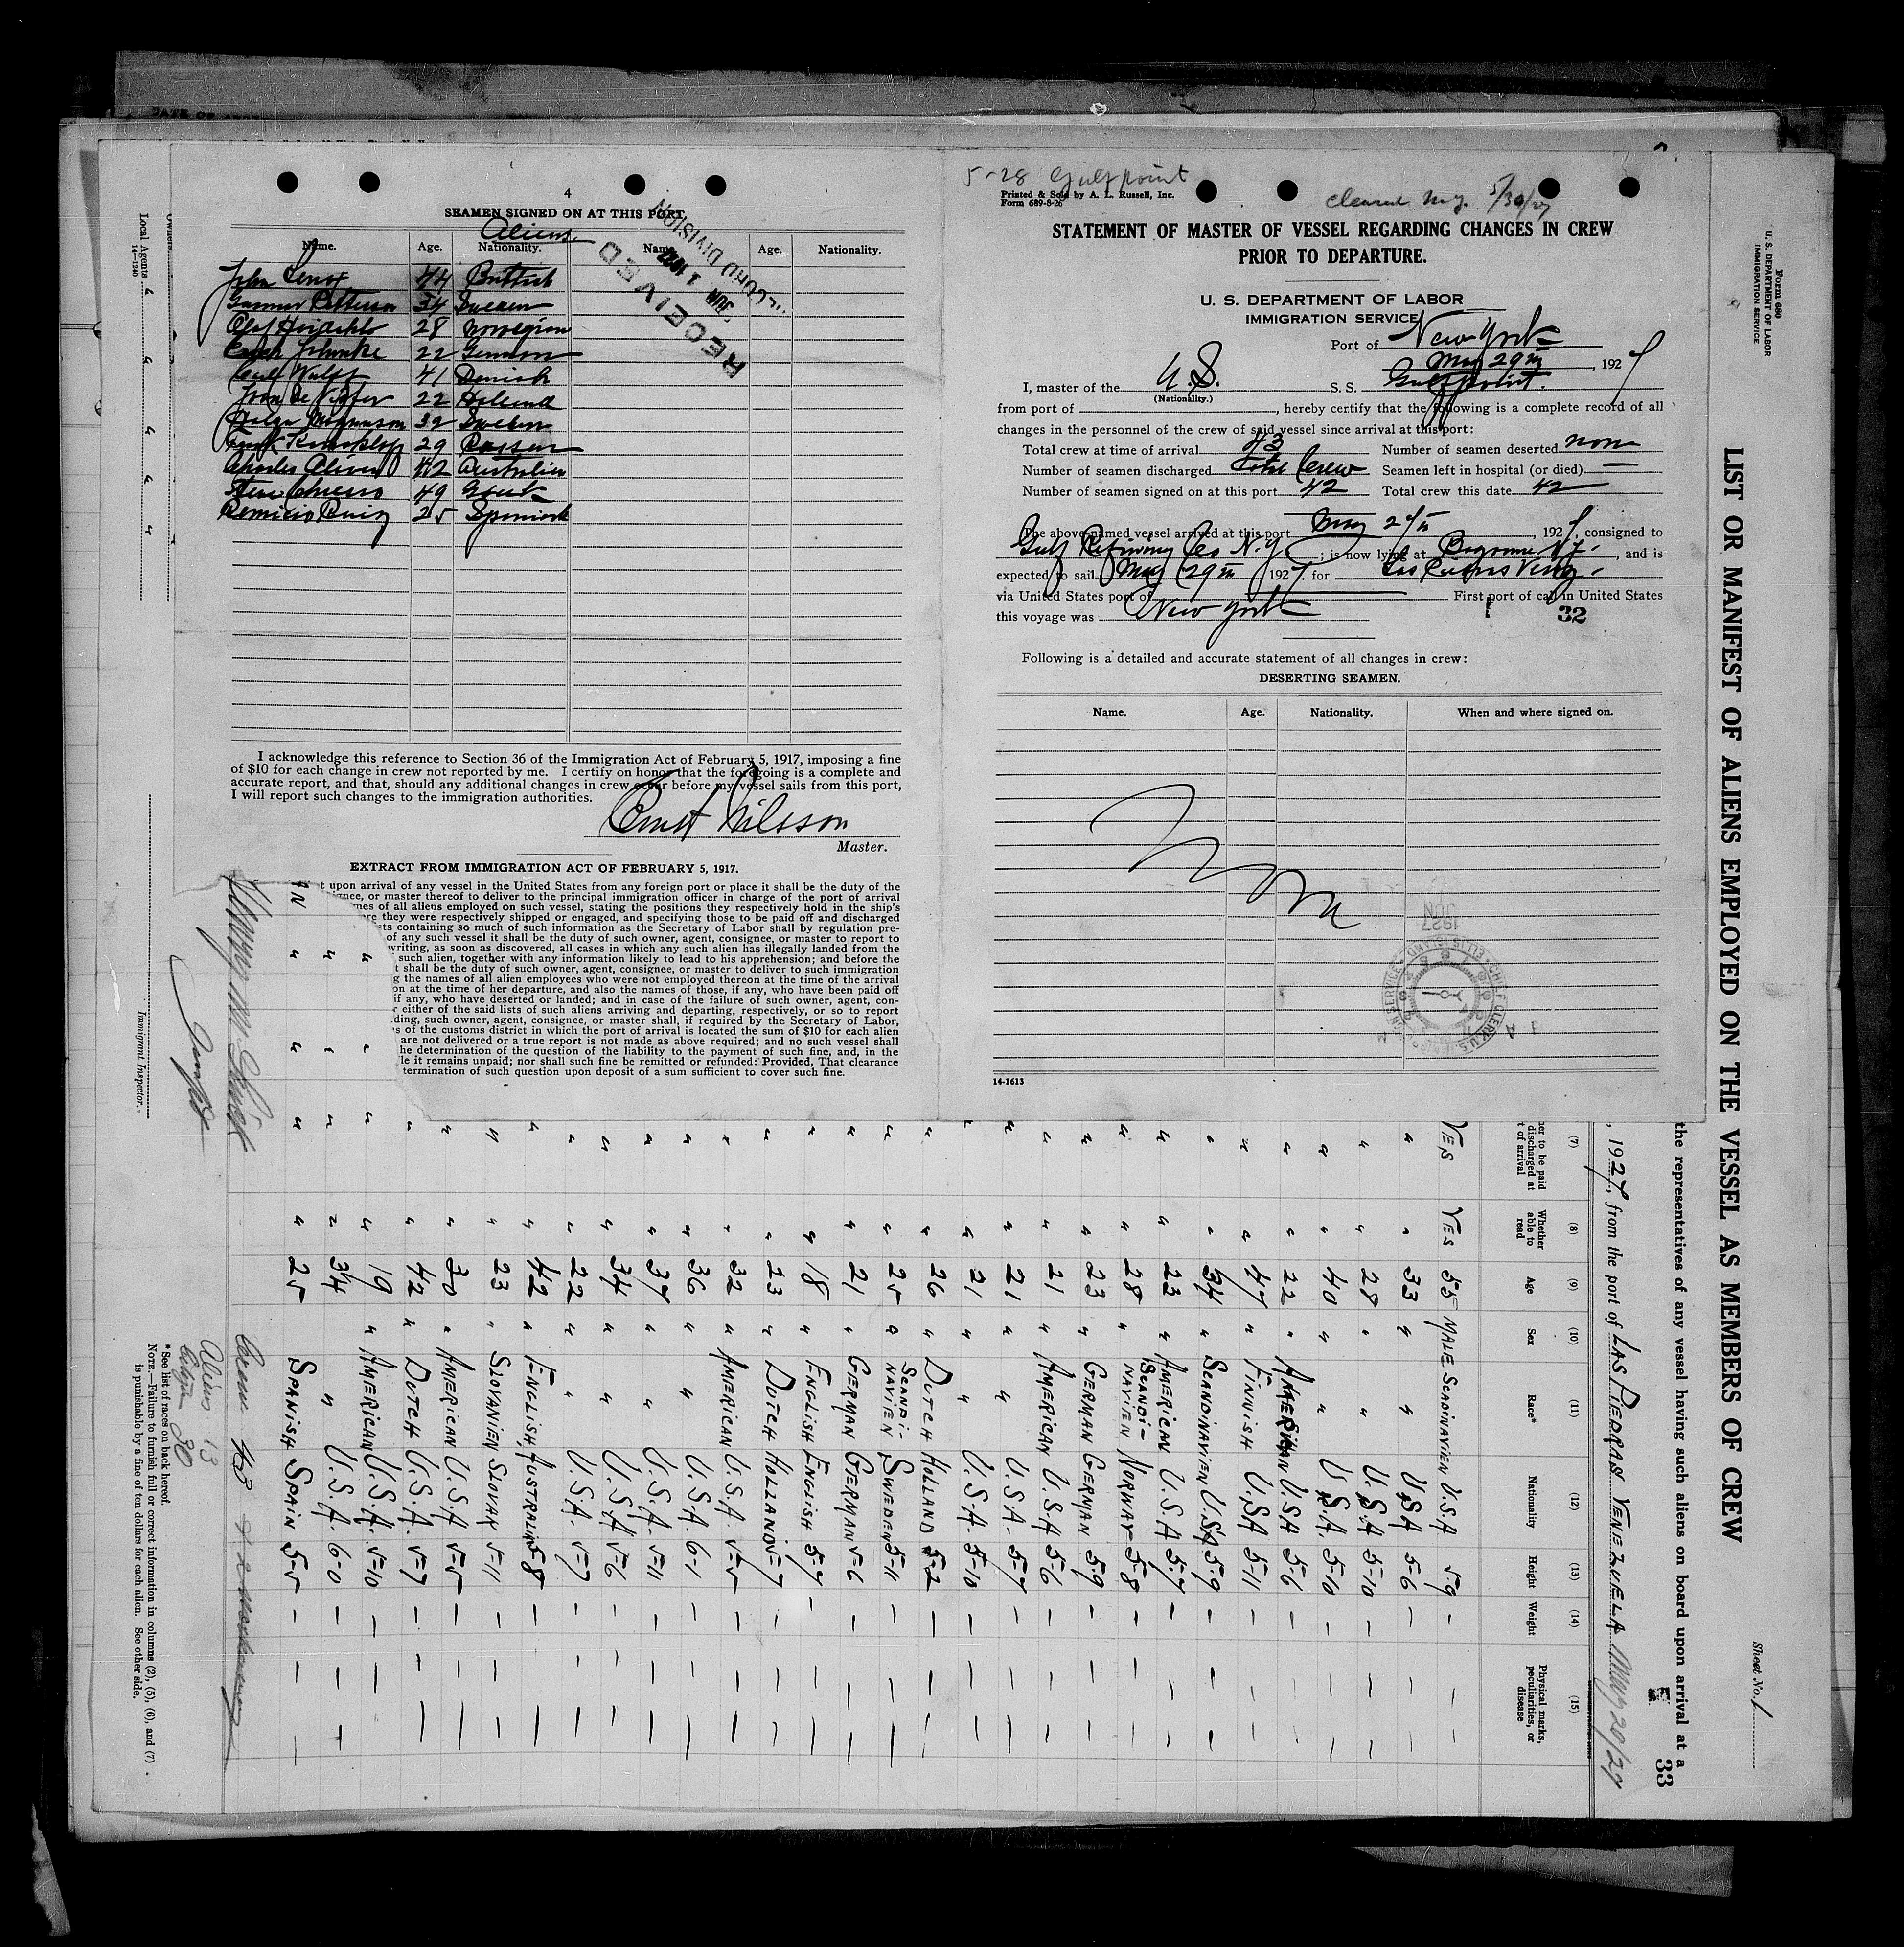 4
SEAMEN SIGNED ON AT THIS PORT.
Aliens
Name. Age. Nationality. Name. Age. Nationality.
John 44 British
Gunnar Petterson 34 Sweden
Olaf 28 Norwegian
22 German
Wulff 41 Danish
22 Holland
Helge Magnuson 32 Sweden
29 Russian
Charles Oliver 42 Australian
49 Greek
Remicio Ruiz 25 Spaniard
RECEIVED
JUN 1 1927
RECORD DIVISION
I acknowledge this reference to Section 36 of the Immigration Act of February 5, 1917, imposing a fine
of $10 for each change in crew not reported by me. I certify on honor that the foregoing is a complete and
accurate report, and that, should any additional changes in crew occur before my vessel sails from this port,
I will report such changes to the immigration authorities.
Ernst Nilsson
Master.
EXTRACT FROM IMMIGRATION ACT OF FEBRUARY 5, 1917.
t upon arrival of any vessel in the United States from any foreign port or place it shall be the duty of the
gnee, or master thereof to deliver to the principal immigration officer in charge of the port of arrival
mes of all aliens employed on such vessel, stating the positions they respectively hold in the ship's
re they were respectively shipped or engaged, and specifying those to be paid off and discharged
sts containing so much of such information as the Secretary of Labor shall by regulation pre-
of any such vessel it shall be the duty of such owner, agent, consignee, or master to report to
writing, as soon as discovered, all cases in which any such alien has illegally landed from the
such alien, together with any information likely to lead to his apprehension; and before the
t shall be the duty of such owner, agent, consignee, or master to deliver to such immigration
g the names of all alien employees who were not employed thereon at the time of the arrival
on at the time of her departure, and also the names of those, if any, who have been paid off
if any, who have deserted or landed; and in case of the failure of such owner, agent, con-
r either of the said lists of such aliens arriving and departing, respectively, or so to report
ding, such owner, agent, consignee, or master shall, if required by the Secretary of Labor,
s of the customs district in which the port of arrival is located the sum of $10 for each alien
are not delivered or a true report is not made as above required; and no such vessel shall
he determination of the question of the liability to the payment of such fine, and, in the
le it remains unpaid; nor shall such fine be remitted or refunded: Provided, That clearance
termination of such question upon deposit of a sum sufficient to cover such fine.
5-28 Gulfpoint
Printed & Sold by A. L. Russell, Inc.
Form 689-8-26
Cleared N.Y. 5/30/27
STATEMENT OF MASTER OF VESSEL REGARDING CHANGES IN CREW
PRIOR TO DEPARTURE.
U. S. DEPARTMENT OF LABOR
IMMIGRATION SERVICE
Port of New York
May 29th, 1927
I, master of the U.S. S. S. Gulfpoint.
(Nationality.)
from port of , hereby certify that the following is a complete record of all
changes in the personnel of the crew of said vessel since arrival at this port:
Total crew at time of arrival 43 Number of seamen deserted none
Number of seamen discharged Total Crew Seamen left in hospital (or died) —
Number of seamen signed on at this port 42 Total crew this date 42
The above named vessel arrived at this port May , 1927, consigned to
Gulf Refining Co N.Y ; is now lying at Bayonne N.J. , and is
expected to sail May 29th 1927. for Las Piedras Venez.
via United States port of First port of call in United States
this voyage was New York 32
Following is a detailed and accurate statement of all changes in crew:
DESERTING SEAMEN.
Name. Age. Nationality. When and where signed on.
None
JUN
1927
14-1613
Form 680
U. S. DEPARTMENT OF LABOR
IMMIGRATION SERVICE
Sheet No. 1
LIST OR MANIFEST OF ALIENS EMPLOYED ON THE VESSEL AS MEMBERS OF CREW
the representatives of any vessel having such aliens on board upon arrival at a
33
, 1927, from the port of LAS PIEDRAS VENEZUELA May 20/27
(7) (8) (9) (10) (11) (12) (13) (14) (15)
her to be paid discharged at t of arrival Whether able to read Age Sex Race* Nationality Height Weight Physical marks, peculiarities, or disease
YES YES 55 MALE SCADINAVIEN U.S.A 5-9 — — —
" " 33 " " U.S.A 5-6 — — —
" " 28 " " U.S.A 5-10 — — —
" " 40 " " U.S.A. 5-10 — — —
" " 22 " AMERICAN U.S.A 5-6 — — —
" " 47 " FINNISH U.S.A 5-11 — — —
" " 34 " SCANDINAVIEN U.S.A 5-9 — — —
" " 23 " AMERICAN U.S.A 5-7 — — —
" " 28 " SCANDI-NAVIEN NORWAY 5-8 — — —
" " 23 " GERMAN GERMAN 5-9 — — —
" " 21 " AMERICAN U.S.A 5-6 — — —
" " 21 " " U.S.A. 5-7 — — —
" " 21 " " U.S.A. 5-10 — — —
" " 26 " DUTCH HOLAND 5-2 — — —
" " 25 " SCANDI-NAVIEN SWEDEN 5-11 — — —
" " 21 " GERMAN GERMAN 5-6 — — —
" " 18 " ENGLISH ENGLISH 5-7 — — —
" " 23 " DUTCH HOLLAND 5-7 — — —
" " 32 " AMERICAN U.S.A 5-5 — — —
" " 36 " " U.S.A. 6-1 — — —
" " 37 " " U.S.A. 5-11 — — —
" " 34 " " U.S.A. 5-6 — — —
" " 22 " " U.S.A 5-7 — — —
" " 42 " ENGLISH AUSTRALIAN 5-8 — — —
" " 23 " SLOVANIEN SLOVAK 5-11 — — —
" " 30 " AMERICAN U.S.A 5-5 — — —
" " 42 " DUTCH U.S.A. 5-7 — — —
" " 19 " AMERICAN U.S.A. 5-10 — — —
" " 34 " U.S.A. 6-0 — — —
" " 25 SPANISH SPAIN 5-5 — — —
Crew 43
Aliens 13
30
*See list of races on back hereof.
NOTE.—Failure to furnish full or correct information in columns (2), (5), (6), and (7)
is punishable by a fine of ten dollars for each alien. See other side.
Immigrant Inspector.
Local Agents
14—1240
Owners